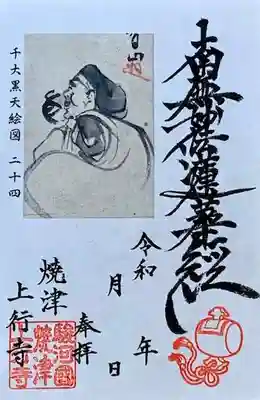 南無妙法蓮華経
千大黒天絵図 二十四
令和 年
月 日
奉拝
焼津
上行寺
駿河國
焼津